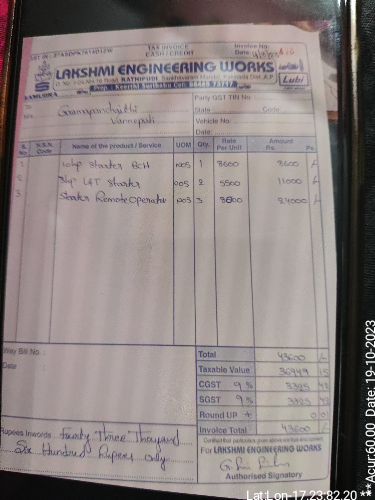 TAX INVOICE
CASH / CREDIT
Invoice No.
Date
LAKSHMI ENGINEERING WORKS
SAMUDRA
Lubi
To
M/s
Grampanchathi
Party GST TIN No.
State Code
Vehicle No
Date:
S. No
H.S.N. Code
Name of the product / Service
UOM
Qty.
Rate Per Unit
Amount Rs. Ps.
1 Starter BCH nos 1 8600 8600 /-
2 Starter nos 2 5500 11000 /-
3 Starter Remote Operator nos 3 8000 24000 /-
Way Bill No :
Date
Total 43600 /-
Taxable Value 36949 15
CGST 9 % 3325 42
SGST 9 % 3325 42
Round UP + 0 01
Invoice Total 43600 /-
Rupees Inwords Fourty Three Thousand
Six Hundred Rupees only
Certified that particulars given above are true and correct
For LAKSHMI ENGINEERING WORKS
Authorised Signatory
Lat Lon-17.23,82.20 ***Acur:60.00 Date: 19-10-2023